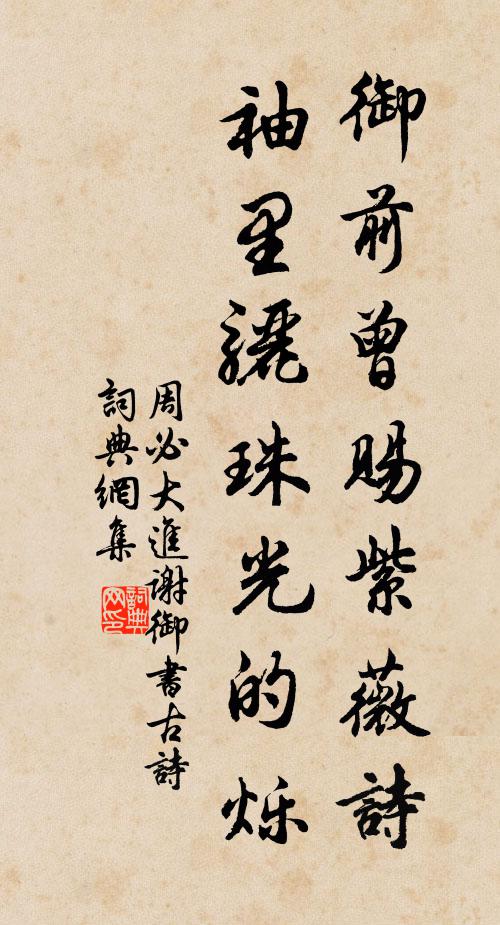 御前曾賜紫薇詩
袖里驪珠光的烁
周必大進謝御書古詩
詞典網集
詞典网印